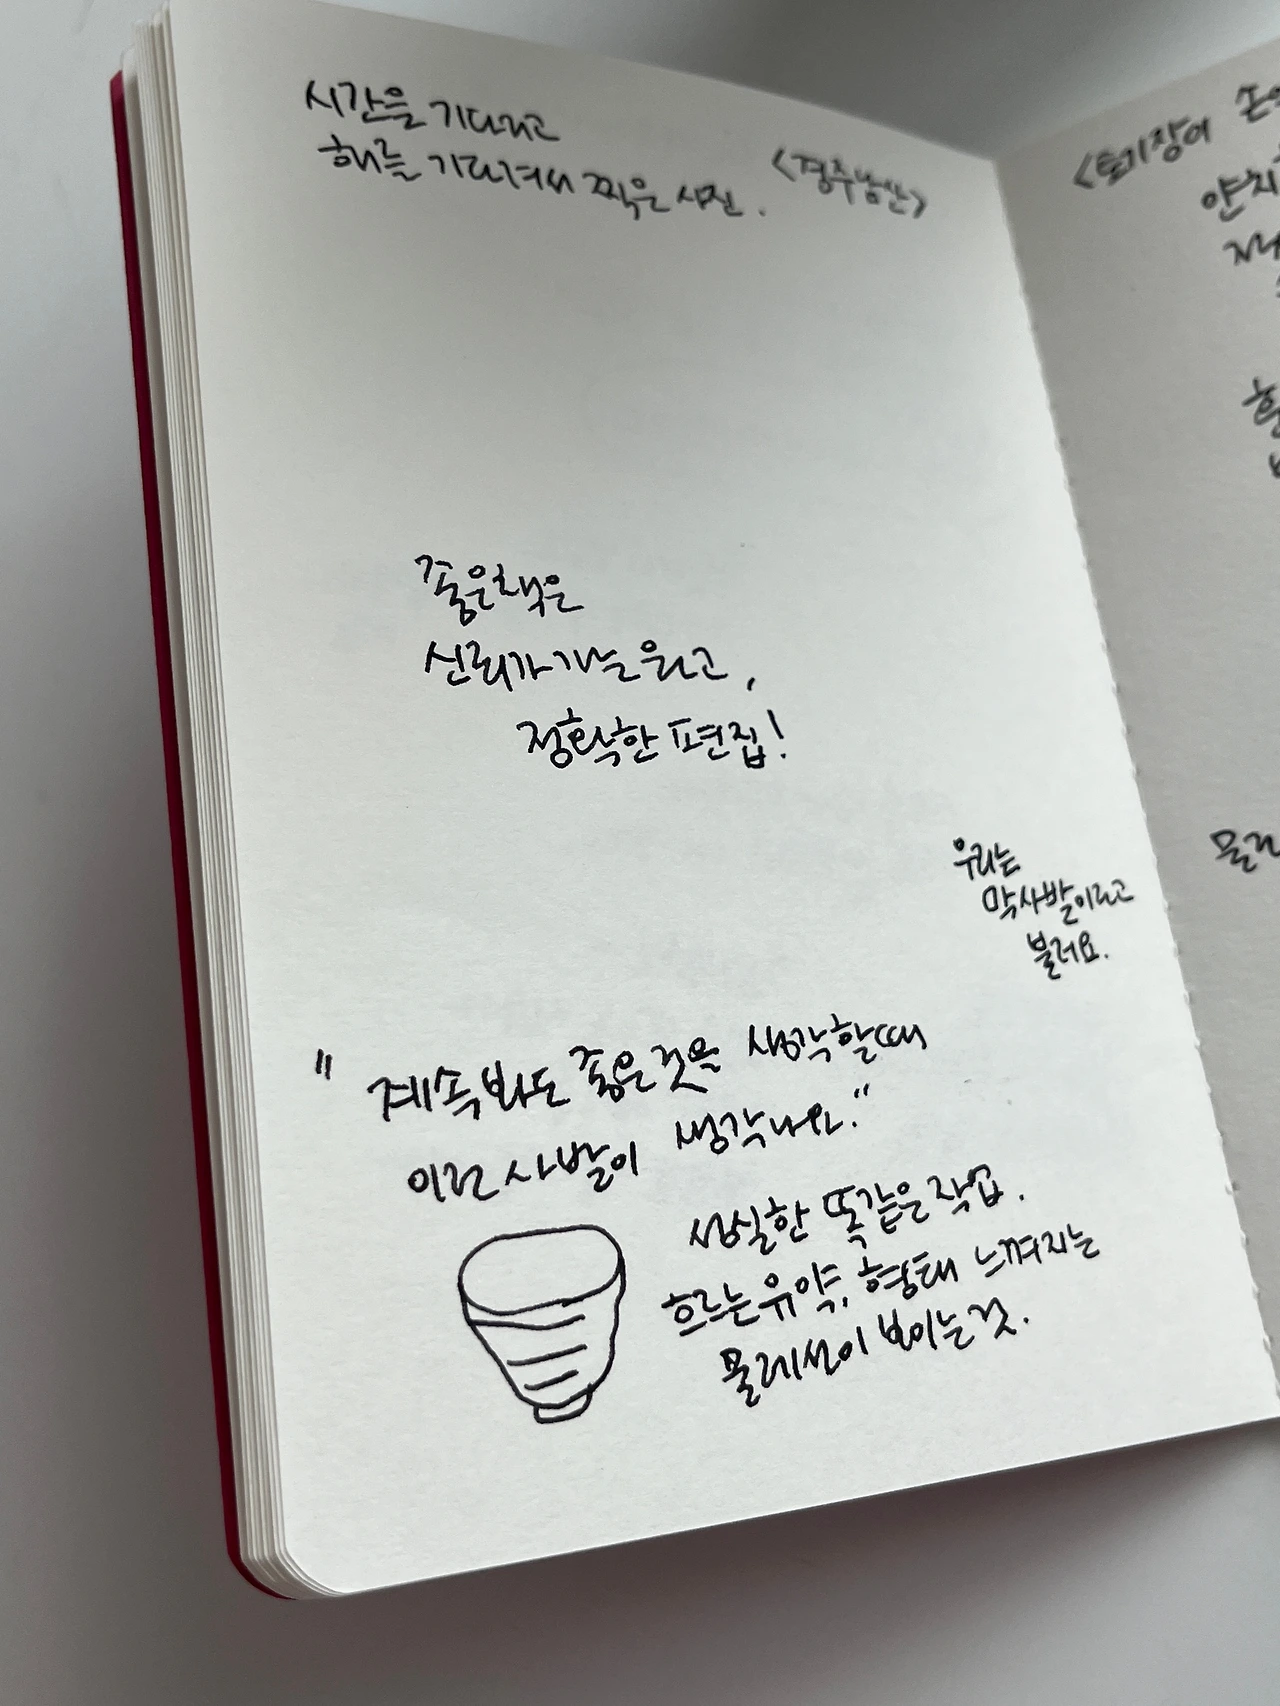 시간을 기다리고
해를 기다려서 찍은 사진. <경주남산>
좋은책은
신뢰가 가는 원고,
정확한 편집!
우리는
막사발이라고
불러요.
"계속봐도 좋은것을 생각할때
이런 사발이 생각나요."
성실한 똑같은 작업.
흐르는 유약, 형태 느껴지는
물레선이 보이는것.
<토기장이